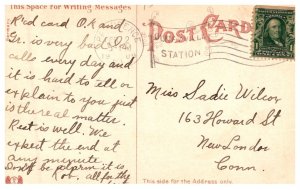 This Space for Writing Messages
POST CARD
Red card O.K. and
Gr. is very bad. Dr
calls every day and
it is hard to tell or
explain to you just
is there al matter.
Rest is well. We
expect the end at
any minute
Don't be alarm it is
for the
STATION
Miss Sadie Wilcox
163 Howard St
New London
Conn.
This side for the Address only.